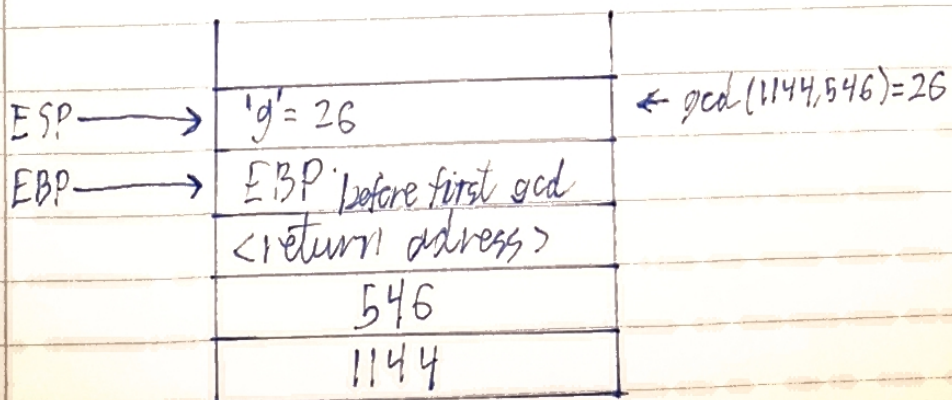 ESP → 'g' = 26 ← gcd(1144,546)=26
EBP → EBP before first gcd
<return adress>
546
1144